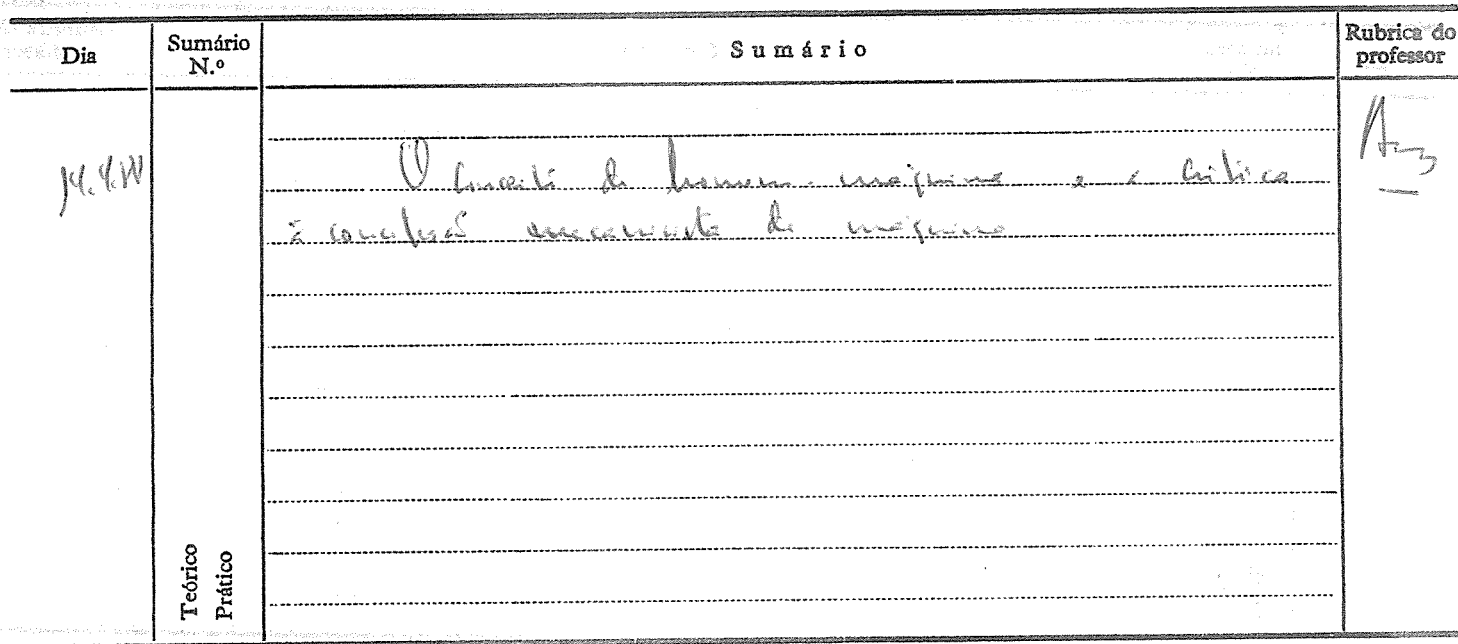 Dia
Sumário N.º
Sumário
Rubrica do professor
O conceito de homem-máquina e a crítica
à concepção mecanicista de máquina
Teórico
Prático